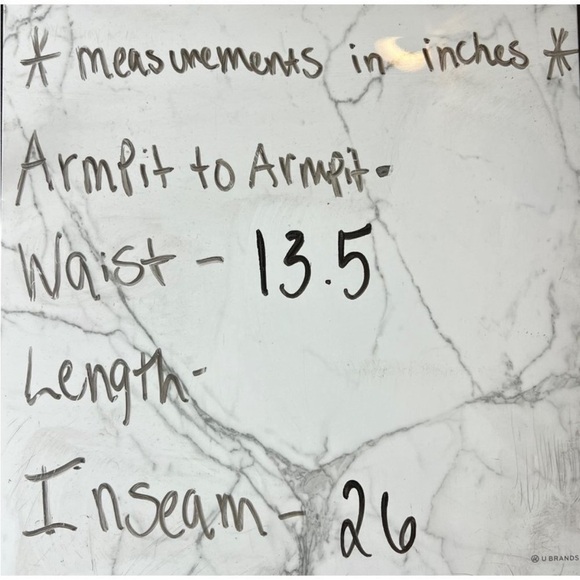 * measurements in inches *
Armpit to Armpit-
Waist - 13.5
Length-
Inseam - 26
U BRANDS